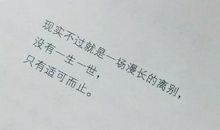 现实不过就是一场漫长的离别，
没有一生一世，
只有适可而止。